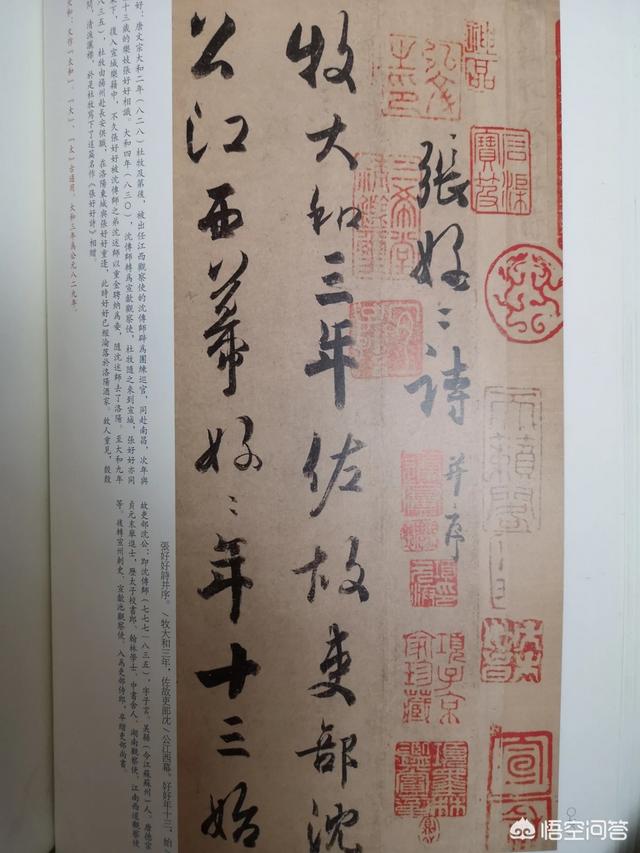 神品
石渠寶笈
天籟閣
項子京家珍藏
張好〻詩并序
三希堂精鑑璽
宜子孫
牧大和三年佐故吏部沈
公江西幕好〻年十三始
張好好詩并序。/牧大和三年,佐故吏部沈/公江西幕。好好年十三,始
好:唐文宗大和二年(八二八)杜牧及第後,被出任江西觀察使的沈傳師辟爲團練巡官,同赴南昌,次年與
十三歲的樂妓張好好相識。大和四年(八三〇),沈傳師轉爲宣歙觀察使,杜牧隨之來到宣城,張好好亦同
下,復入宣城樂籍中,不久張好好被沈傳師之弟沈述師以重金聘納爲妾,隨沈述師去了洛陽。至大和九年
八三五),杜牧由揚州赴長安供職,在洛陽東城與張好好重逢,此時好好已經淪落於洛陽酒家。故人重見,殷殷
問,清淚灑襟,於是杜牧寫下了這篇名作《張好好詩》相贈。
大和:又作「太和」。「大」、「太」古通用。大和三年爲公元八二九年。
故吏部沈公:即沈傳師(七七七—八三五),字子言。吳縣(今江蘇蘇州)人。唐德宗
貞元末舉進士,歷太子校書郎、翰林學士、中書舍人、湖南觀察使、江南西道觀察使
等。後轉宣州刺史、宣歙池觀察使。入爲吏部侍郎,卒贈吏部尚書。
悟空问答